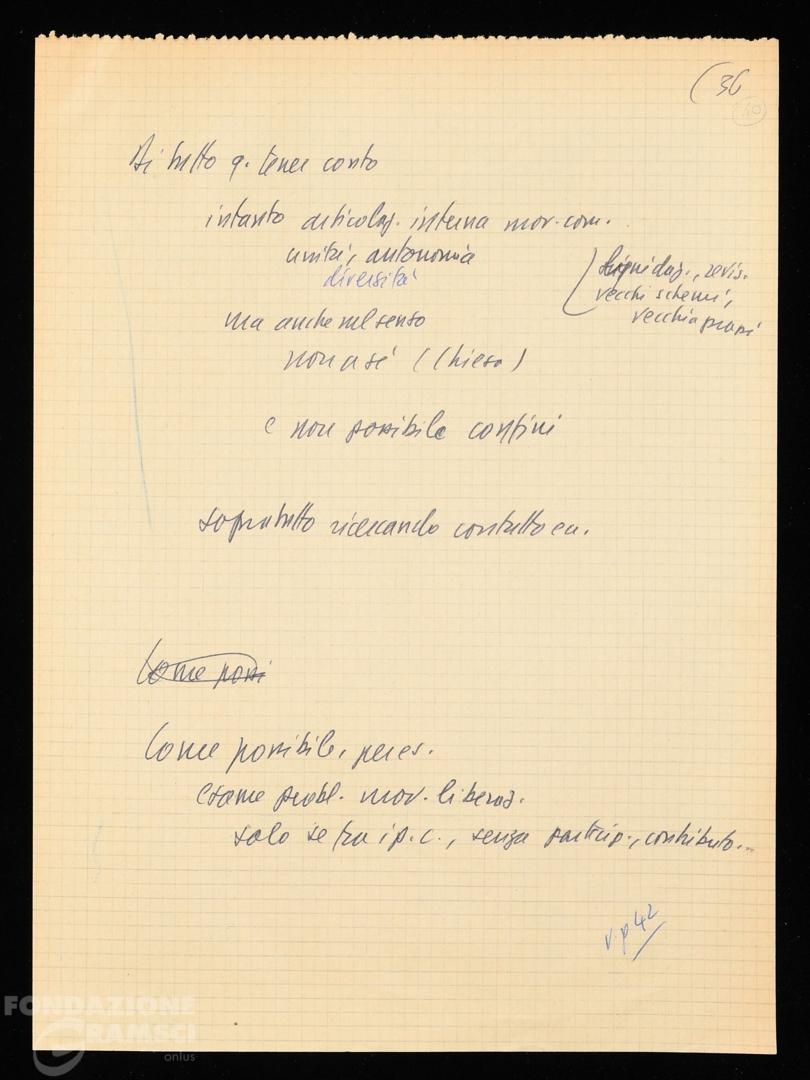 (36
(40)
Di tutto q. tener conto
intanto articolaz. interna mov. com.
unità, autonomia
diversità
(liquidaz., revis.
vecchi schemi,
vecchia prassi
ma anche nel senso
non a sé (Chiesa)
e non possibile confini
sopratutto ricercando contatto ecc.
Come possi
Come possibile, per es.
esame probl. mov. liberaz.
solo se fra i p.c., senza particip., contributo...
v. p 42
FONDAZIONE
GRAMSCI
onlus